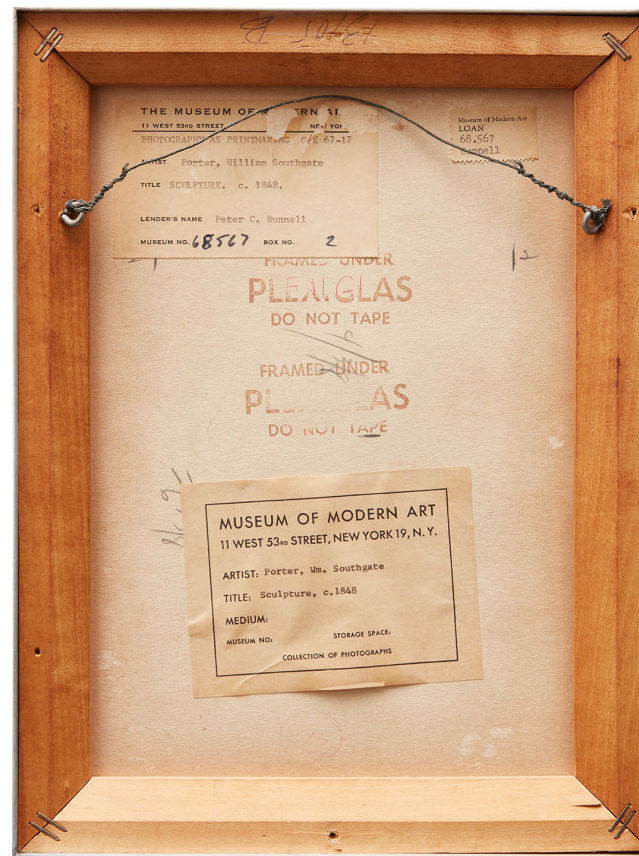 THE MUSEUM OF MODERN ART
11 WEST 53RD STREET NEW YORK
PHOTOGRAPHY AS PRINTMAKING C/E 67-17
ARTIST Porter, William Southgate
TITLE SCULPTURE. c. 1848.
LENDER'S NAME Peter C. Bunnell
MUSEUM NO. 68567 BOX NO. 2
Museum of Modern Art
LOAN
68.567
Bunnell
FRAMED UNDER
PLEXIGLAS
DO NOT TAPE
FRAMED UNDER
PLEXIGLAS
DO NOT TAPE
MUSEUM OF MODERN ART
11 WEST 53RD STREET, NEW YORK 19, N.Y.
ARTIST: Porter, Wm. Southgate
TITLE: Sculpture, c.1848
MEDIUM:
MUSEUM NO: STORAGE SPACE:
COLLECTION OF PHOTOGRAPHS
15